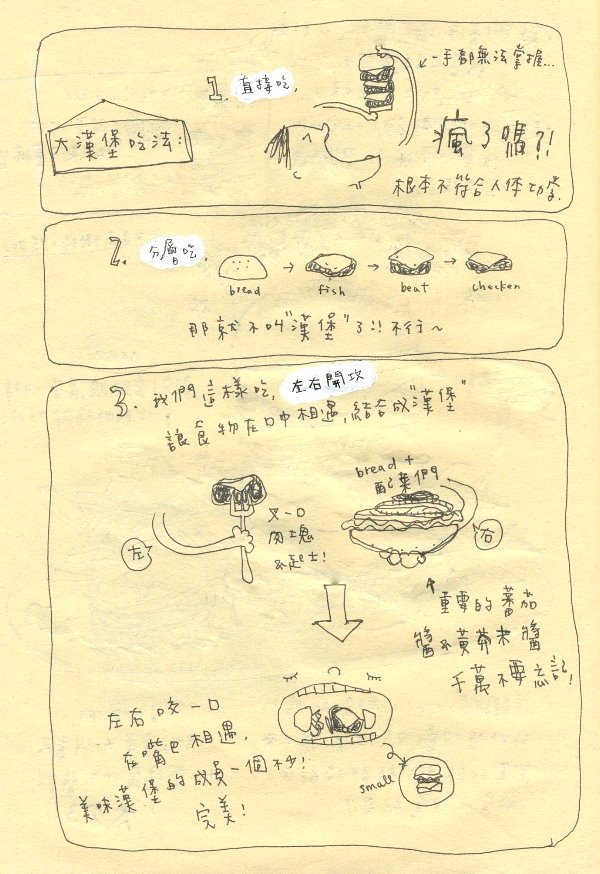 大漢堡吃法:
1. 直接吃,
一手都無法掌握...
瘋了嗎?!
根本不符合人体工學.
2. 分層吃,
bread → fish → beat → checken
那就不叫"漢堡"了!! 不行~
3. 我們這樣吃, 左右開攻
讓食物在口中相遇, 結合成"漢堡"
左
叉一口
肉塊
&起士!
bread +
配菜們
右
重要的蕃茄
醬&黃芥末醬
千萬不要忘記!
左右咬一口
在嘴巴相遇,
美味漢堡的成員一個不少!
完美!
small